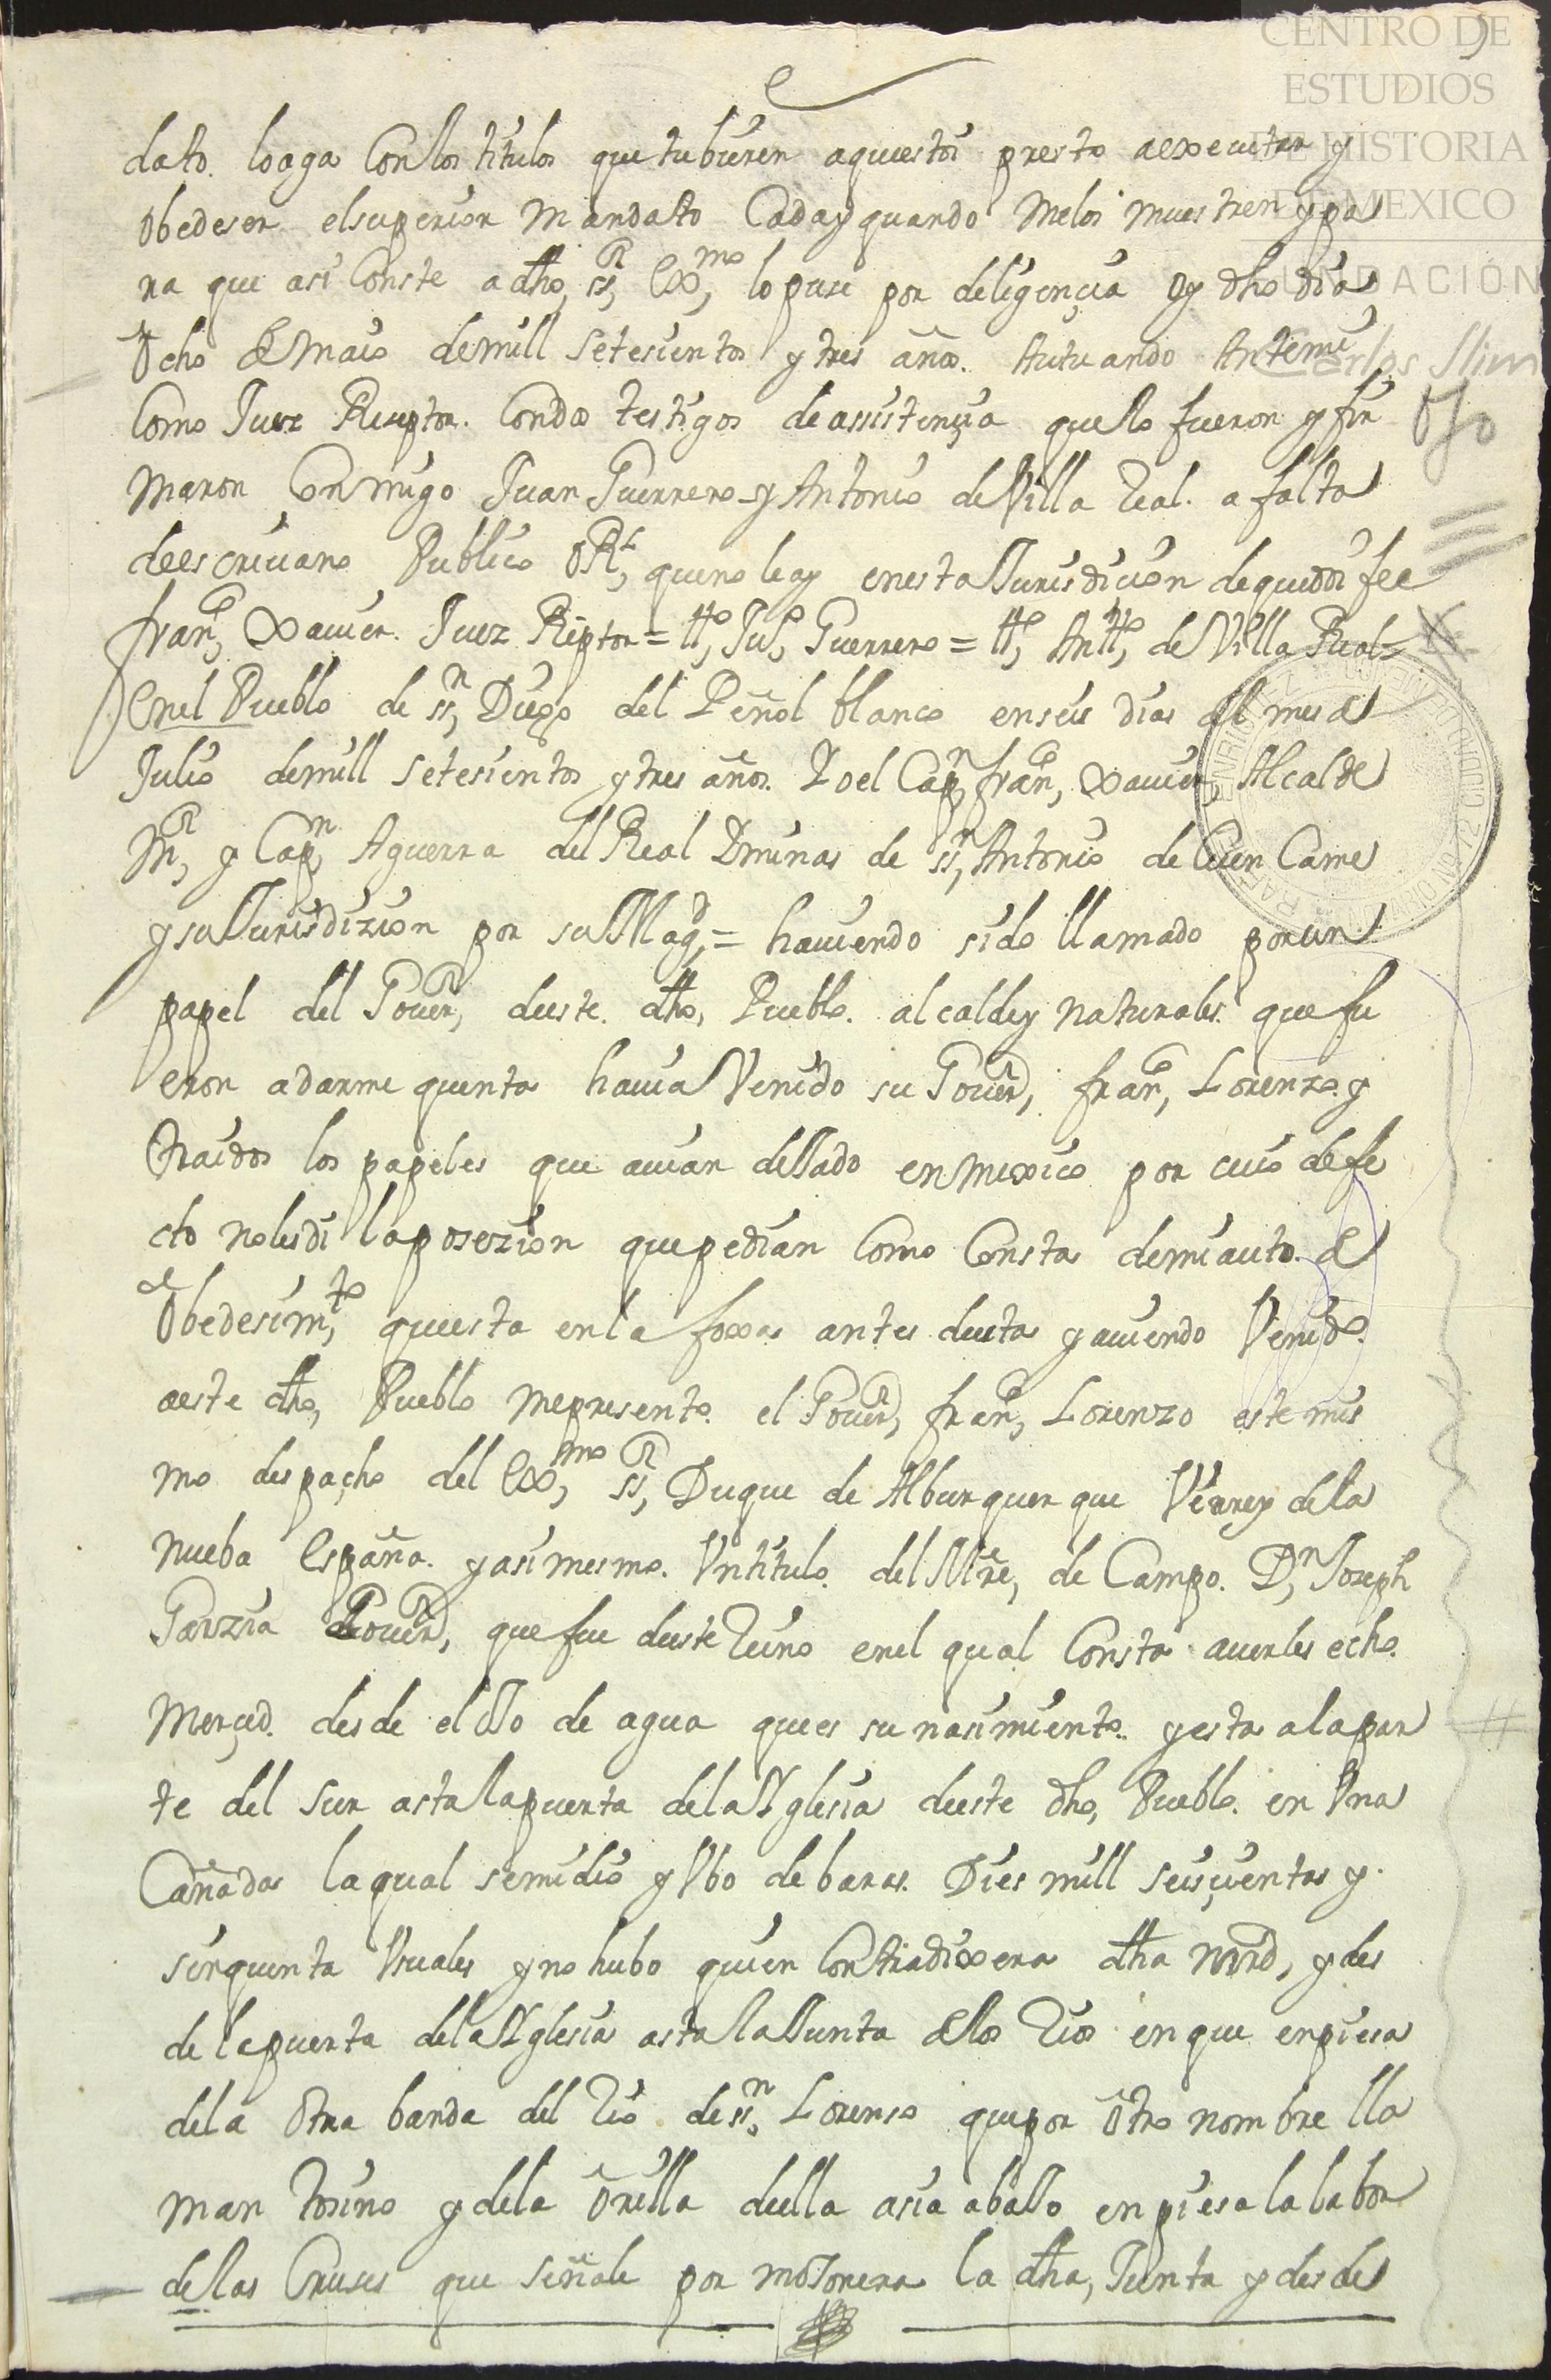 CENTRO DE
ESTUDIOS
DE HISTORIA
DE MEXICO
FUNDACIÓN
Carlos Slim
dato. lo aga Con los titulos que tubieren aquestoi presto a executar y
Obedeser el superior Mandatto Cada y quando Me los muestren y pa
ra que asi Conste a dho, ss.r Exmo, lo puse por deligençia oy dho dia
Ocho de Maio de mill Setesientos y tres años. Autuando Ante mi
Como Juez Reseptor. Con dos testigos de assistençia que lo fueron y fir
maron Conmigo Juan Guerrero y Antonio de Villa Real. a falta
de escriuano Publico O Rl, que no le ay en esta Jurisdicion de que doi fee
franco, Xauier. Juez Reptor = tto, Juo, Guerrero = tto, Antto, de Villa Real =
En el Pueblo de ssn, Diego del Peñol blanco en seis dias del mes de
Julio de mill setesientos y tres años. Yo el Capn, franco, Xauier, Alcalde
Mr, y Capn, Aguerra del Real D minas de ssn, Antonio de Cuen Came
y su Jurisdizion por su Magd, = hauiendo sido llamado por un
papel del Gouer, deeste dho, Pueblo. alcalde y naturales. que fu
eron a darme quenta hauia Venido su Gouer, franco, Lorenzo. y
traidos los papeles que auian deJado en Mexico por cuio defe
cto no les di la posezion que pedian Como Consta de mi auto. de
Obedesimto, que esta en la foxa antes deeta y auiendo Venido.
a este dho, Pueblo me presento. el Gouer, franco, Lorenzo este mis
mo despacho del Exmo, ssr, Duque de Alburquerque Virrey de la
nueba España. y asimesmo. Vn titulo. del Mre, de Campo. Dn, Joseph
Garzia Gouer, que fue deeste Reino en el qual Consta auerles echo.
Merçed. desde el oJo de agua que es su nasimiento. y esta a la par
te del Sur asta la puerta de la Yglesia deeste dho, Pueblo. en Vna
Cañada la qual se midio y Vbo de baras. Dies mill seisçientas y
sinquenta Vsuales y no hubo quien Contradixera dha mrd, y des
de la puerta de la Yglesia asta la Junta de los Rios en que enpiesa
de la Otra banda del Rio de ssn, Lorenso que por Otro nombre lla
man tosino y de la Orilla deella asia abaJo enpiesa la labor
de las Cruses que señale por moJonera la dha, Junta y desde
oJo